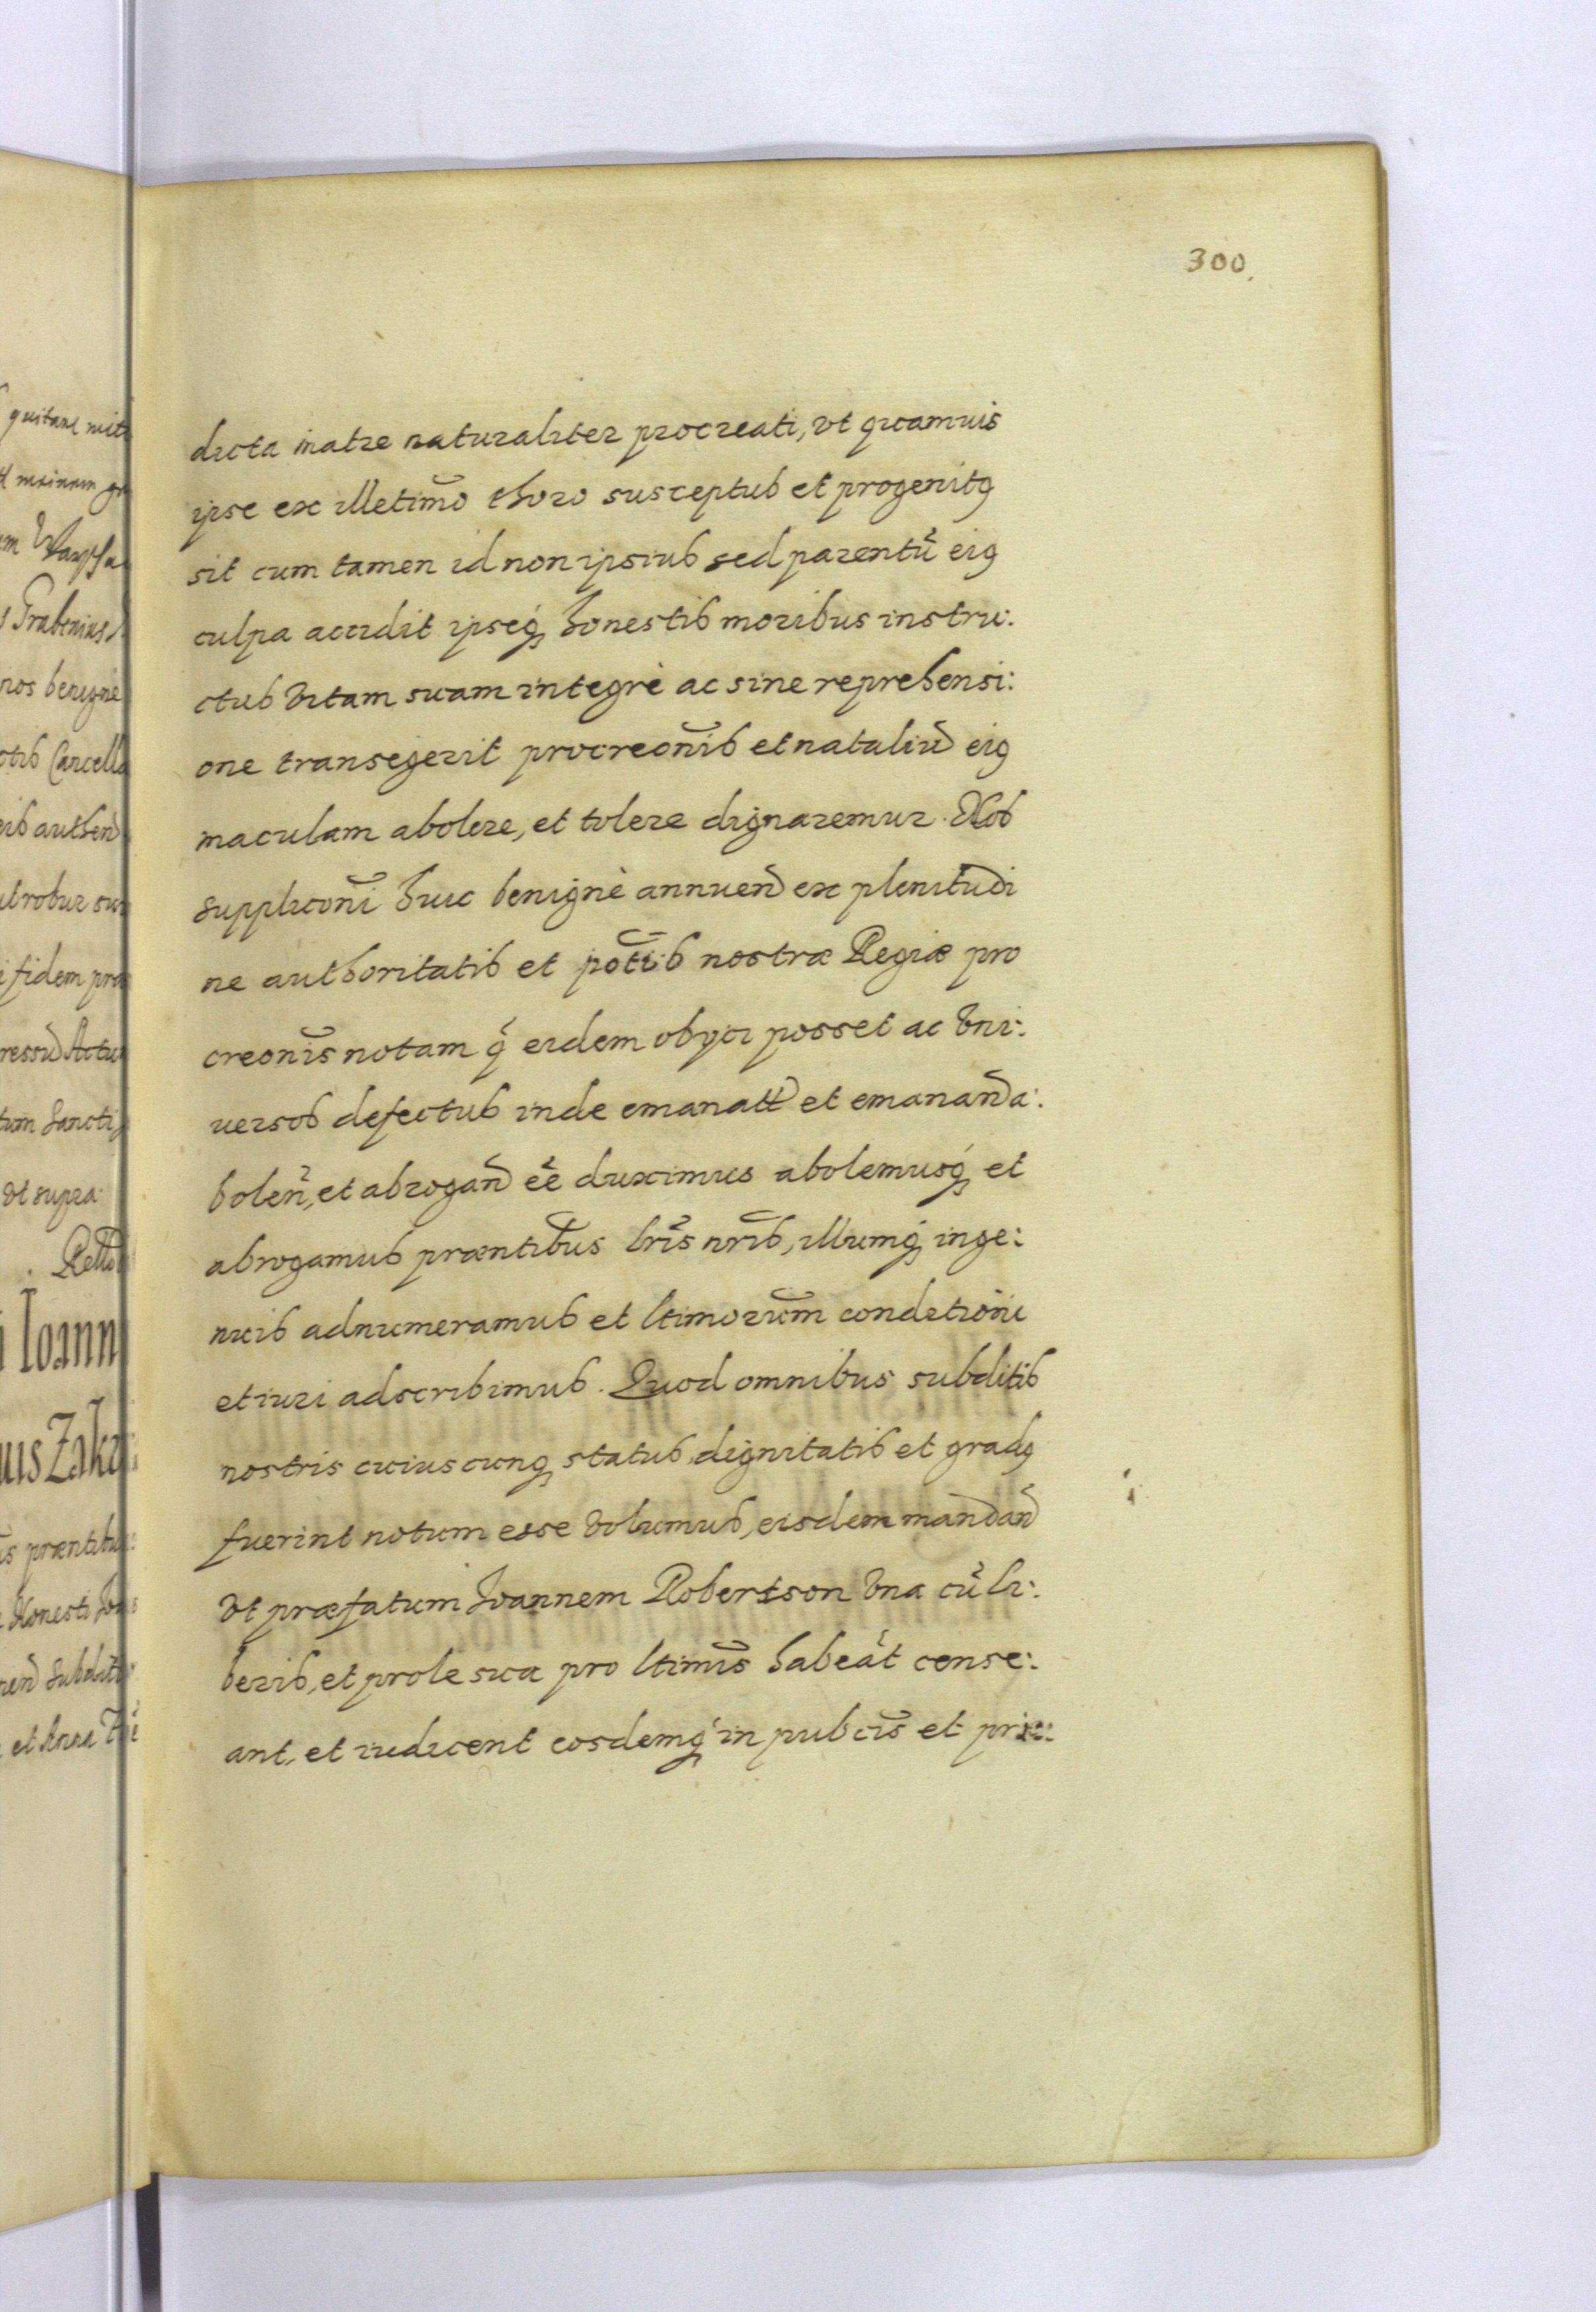 300.
dicta matre naturaliter procreati, vt quamuis
ipse ex illetimo thoro susceptus et progenitꝯ
sit cum tamen id non ipsius sed parentũ eiꝯ
culpa accidit ipseq́ꝫ honestis moribus instru:
ctus vitam suam integrè ac sine reprehensi:
one transegerit procreoñis et nataliũ eiꝯ
maculam abolere, et tolere dignaremur. Nos
supplicoñi huic benignè annueñ ex plenitudi
ne authoritatis et potĩis nostræ Regiæ pro
creoñis notam q̃ eidem obyci posset ac vni:
uersos defectus inde emanatt̃ et emananđ a:
boleñ, et abrogañ eẽ duximus abolemusq́ꝫ et
abrogamus præntibus lris̃ nris̃, illumq́ꝫ inge:
nuis adnumeramus et ltimorum̃ conditioñi
et iuri adscribimus. Quod omnibus subditis
nostris cuiuscunqꝫ status, dignitatis et gradꝯ
fuerint notum esse volumus, eisdem mandañ
vt præfatum Joannem Robertson vna cũ li:
beris, et prole sua pro ltimis̃ habeãt cense:
ant, et iudicent eosdemq́ꝫ in pubcis̃ et pri:
quitans
Grabenius
nos benigne
Cancella
ut robur
fidem
tum Sancti
vt supra
Ioann
Zakr
præntibus
Honesti
et Anna